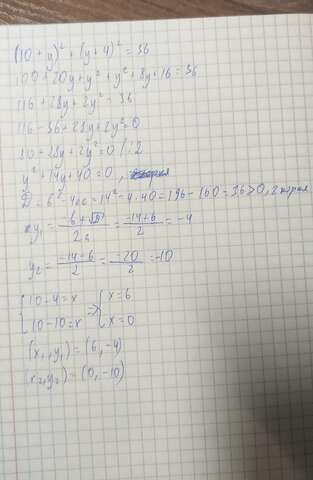 (10+y)² + (y+4)² = 36
100+20y+y² + y² + 8y+16=36
116+28y+2y²=36
116-36+28y+2y²=0
80+28y+2y²=0 /:2
y²+14y+40=0,
D=b²-4ac=14²-4·40=196-160=36>0, 2 корня
y₁ = -b+√D / 2a = -14+6 / 2 = -4
y₂ = -14-6 / 2 = -20 / 2 = -10
{10+4=x ⇒ {x=6
10-10=x x=0
(x₁, y₁) = (6, -4)
(x₂, y₂) = (0, -10)